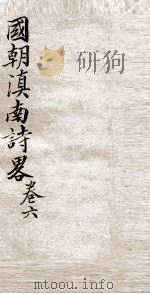 國朝滇南詩畧
卷六
mtoou.info